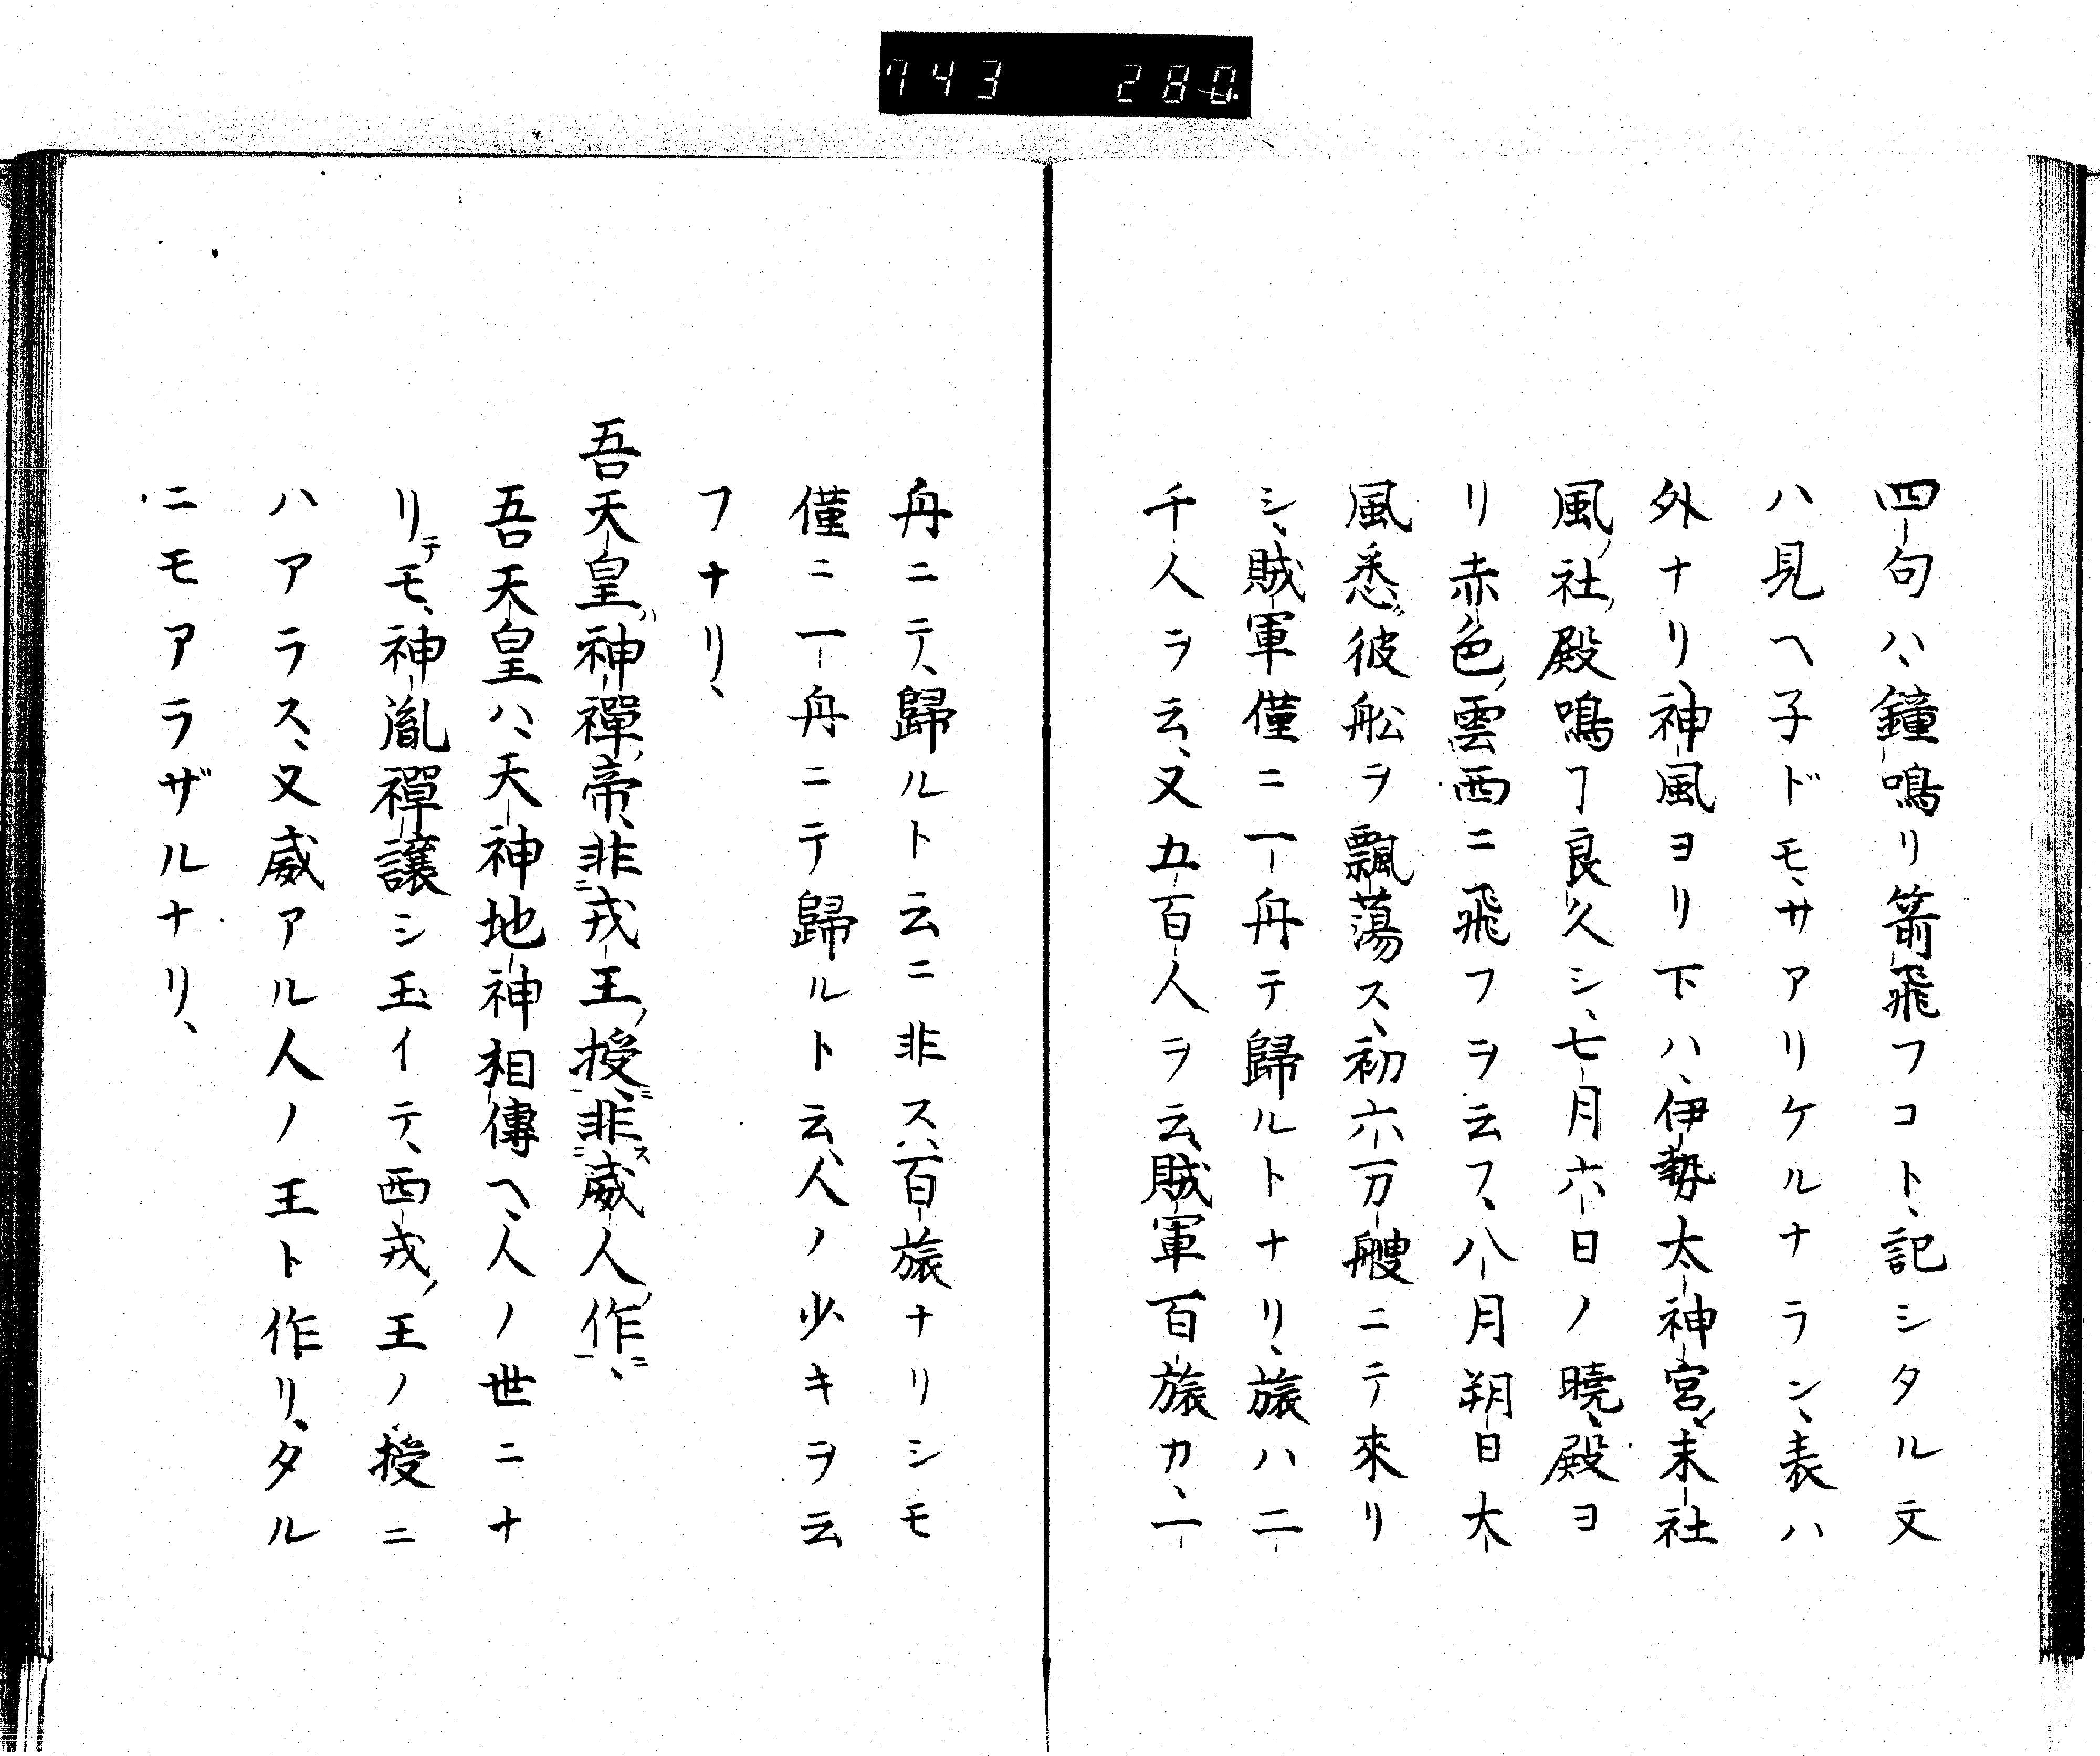 743 280
四句ハ、鐘鳴リ箭飛フコト、記シタル文
ハ見ヘ子ドモ、サアリケルナラン、表ハ
外ナリ、神風ヨリ下ハ、伊勢太神宮、末社
風ノ社ノ殿鳴ヿ良久シ、七月六日ノ曉、殿ヨ
リ赤色ノ雲西ニ飛フヲ云フ、八月朔日大
風悉ク彼舩ヲ飄蕩ス、初六万艘ニテ來リ
シ、賊軍僅ニ一舟テ歸ルトナリ、旅ハ二
千人ヲ云、又五百人ヲ云、賊軍百旅カ、一
舟ニテ、歸ルト云ニ非ス、百旅ナリシモ
僅ニ一舟ニテ歸ルト云、人ノ少キヲ云
フナリ、
吾天皇ハ神禪ノ帝、非ニ戎王ノ授ニ一、非ス三威人ノ作ニ一、
吾天皇ハ、天神地神相傳ヘ、人ノ世ニナ
リテモ、神胤禪譲シ玉イテ、西戎ノ王ノ授ニ
ハアラス、又威アル人ノ王ト作リ、タル
ニモアラザルナリ、